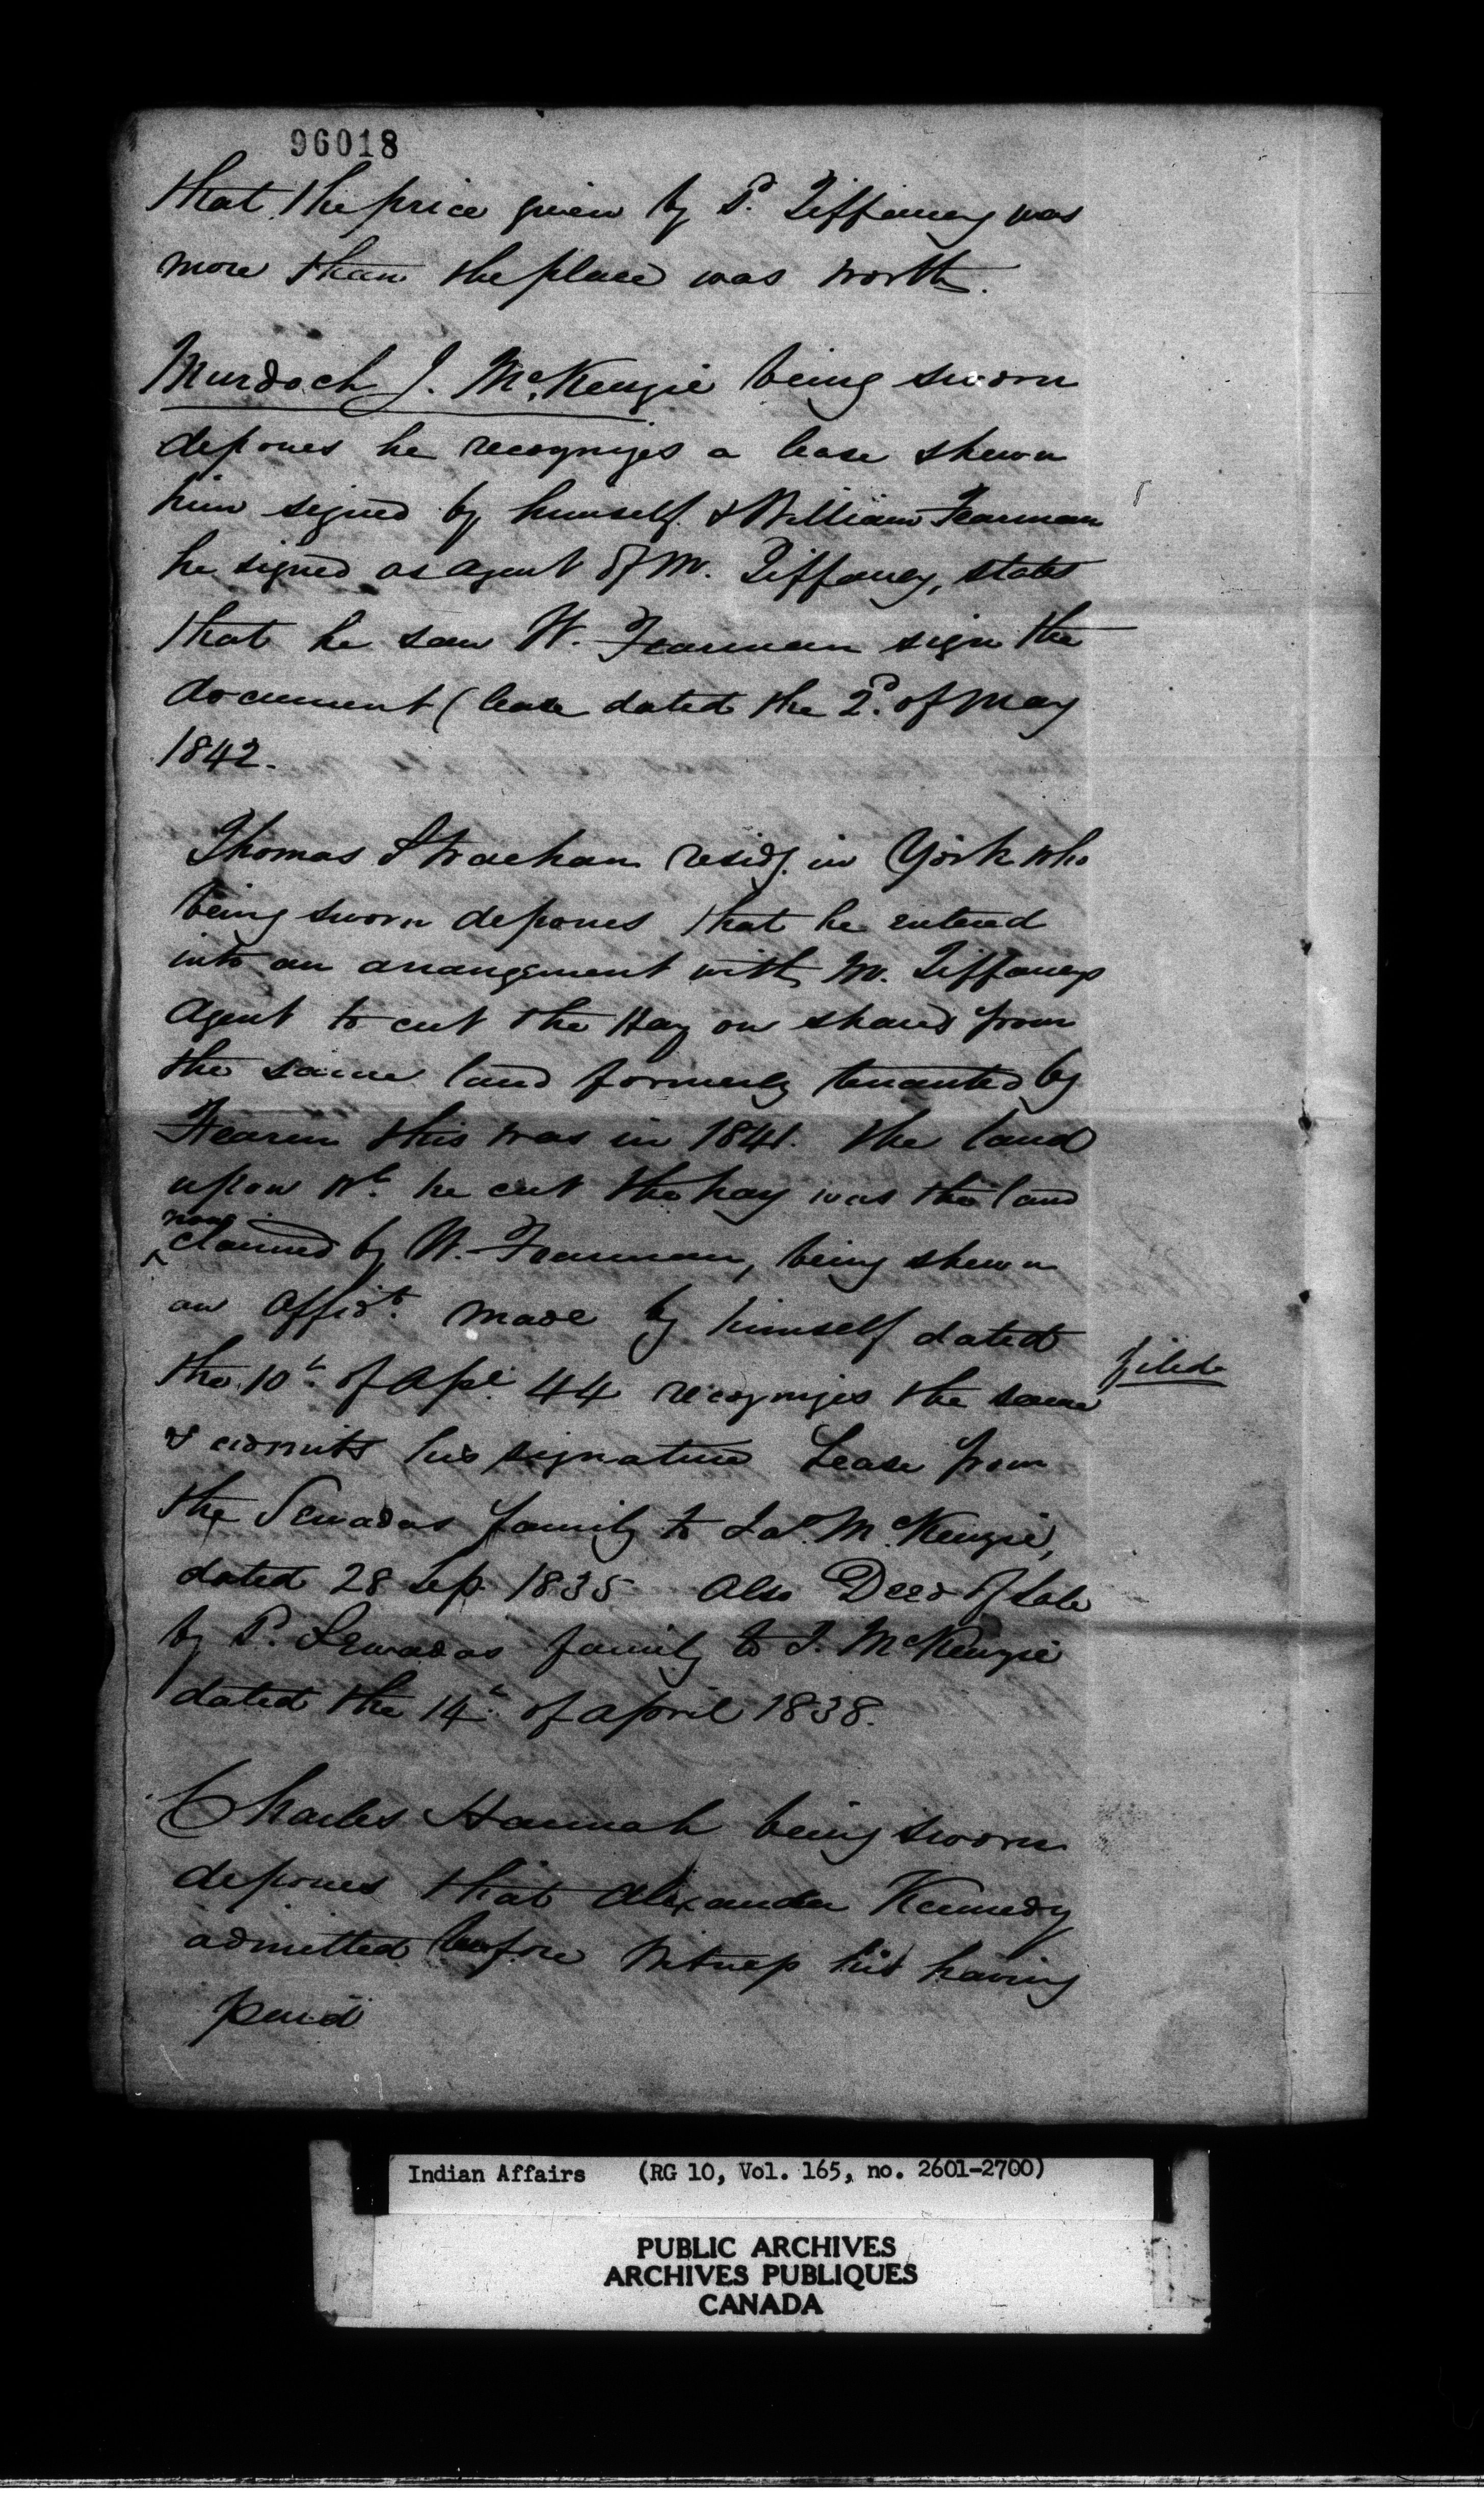 96018
that the price given by P. Tiffaney was
more than the place was worth.
Murdoch J. McKenzie being sworn
depones he recognizes a lease shewn
him signed by himself & William Fearman
he signed as agent of Mr. Tiffaney, states
that he saw W. Fearman sign the
document (lease dated the 2d. of May
1842.
Thomas Strachan residg. in York who
being sworn depones that he entered
into an arrangement with Mr. Tiffaneys
Agent to cut the Hay on shares from
the same land formerly tenanted by
this was in 1841. the land
upon wh. he cut the hay was the land
now
claimed by W. Fearman, being shewn
an affidt. made by himself dated
the 10th. of Apl. 44 recognizes the same
filed
& admits his signature Lease from
the family to Jas. McKenzie,
dated 28 Sep. 1835 Also Deed of Sale
by P. family to J. McKenzie
dated the 14th. of April 1838.
Charles Hannah being sworn
depones that Alexander Kennedy
admitted before Witness his having
paid
Indian Affairs (RG 10, Vol. 165, no. 2601-2700)
PUBLIC ARCHIVES
ARCHIVES PUBLIQUES
CANADA